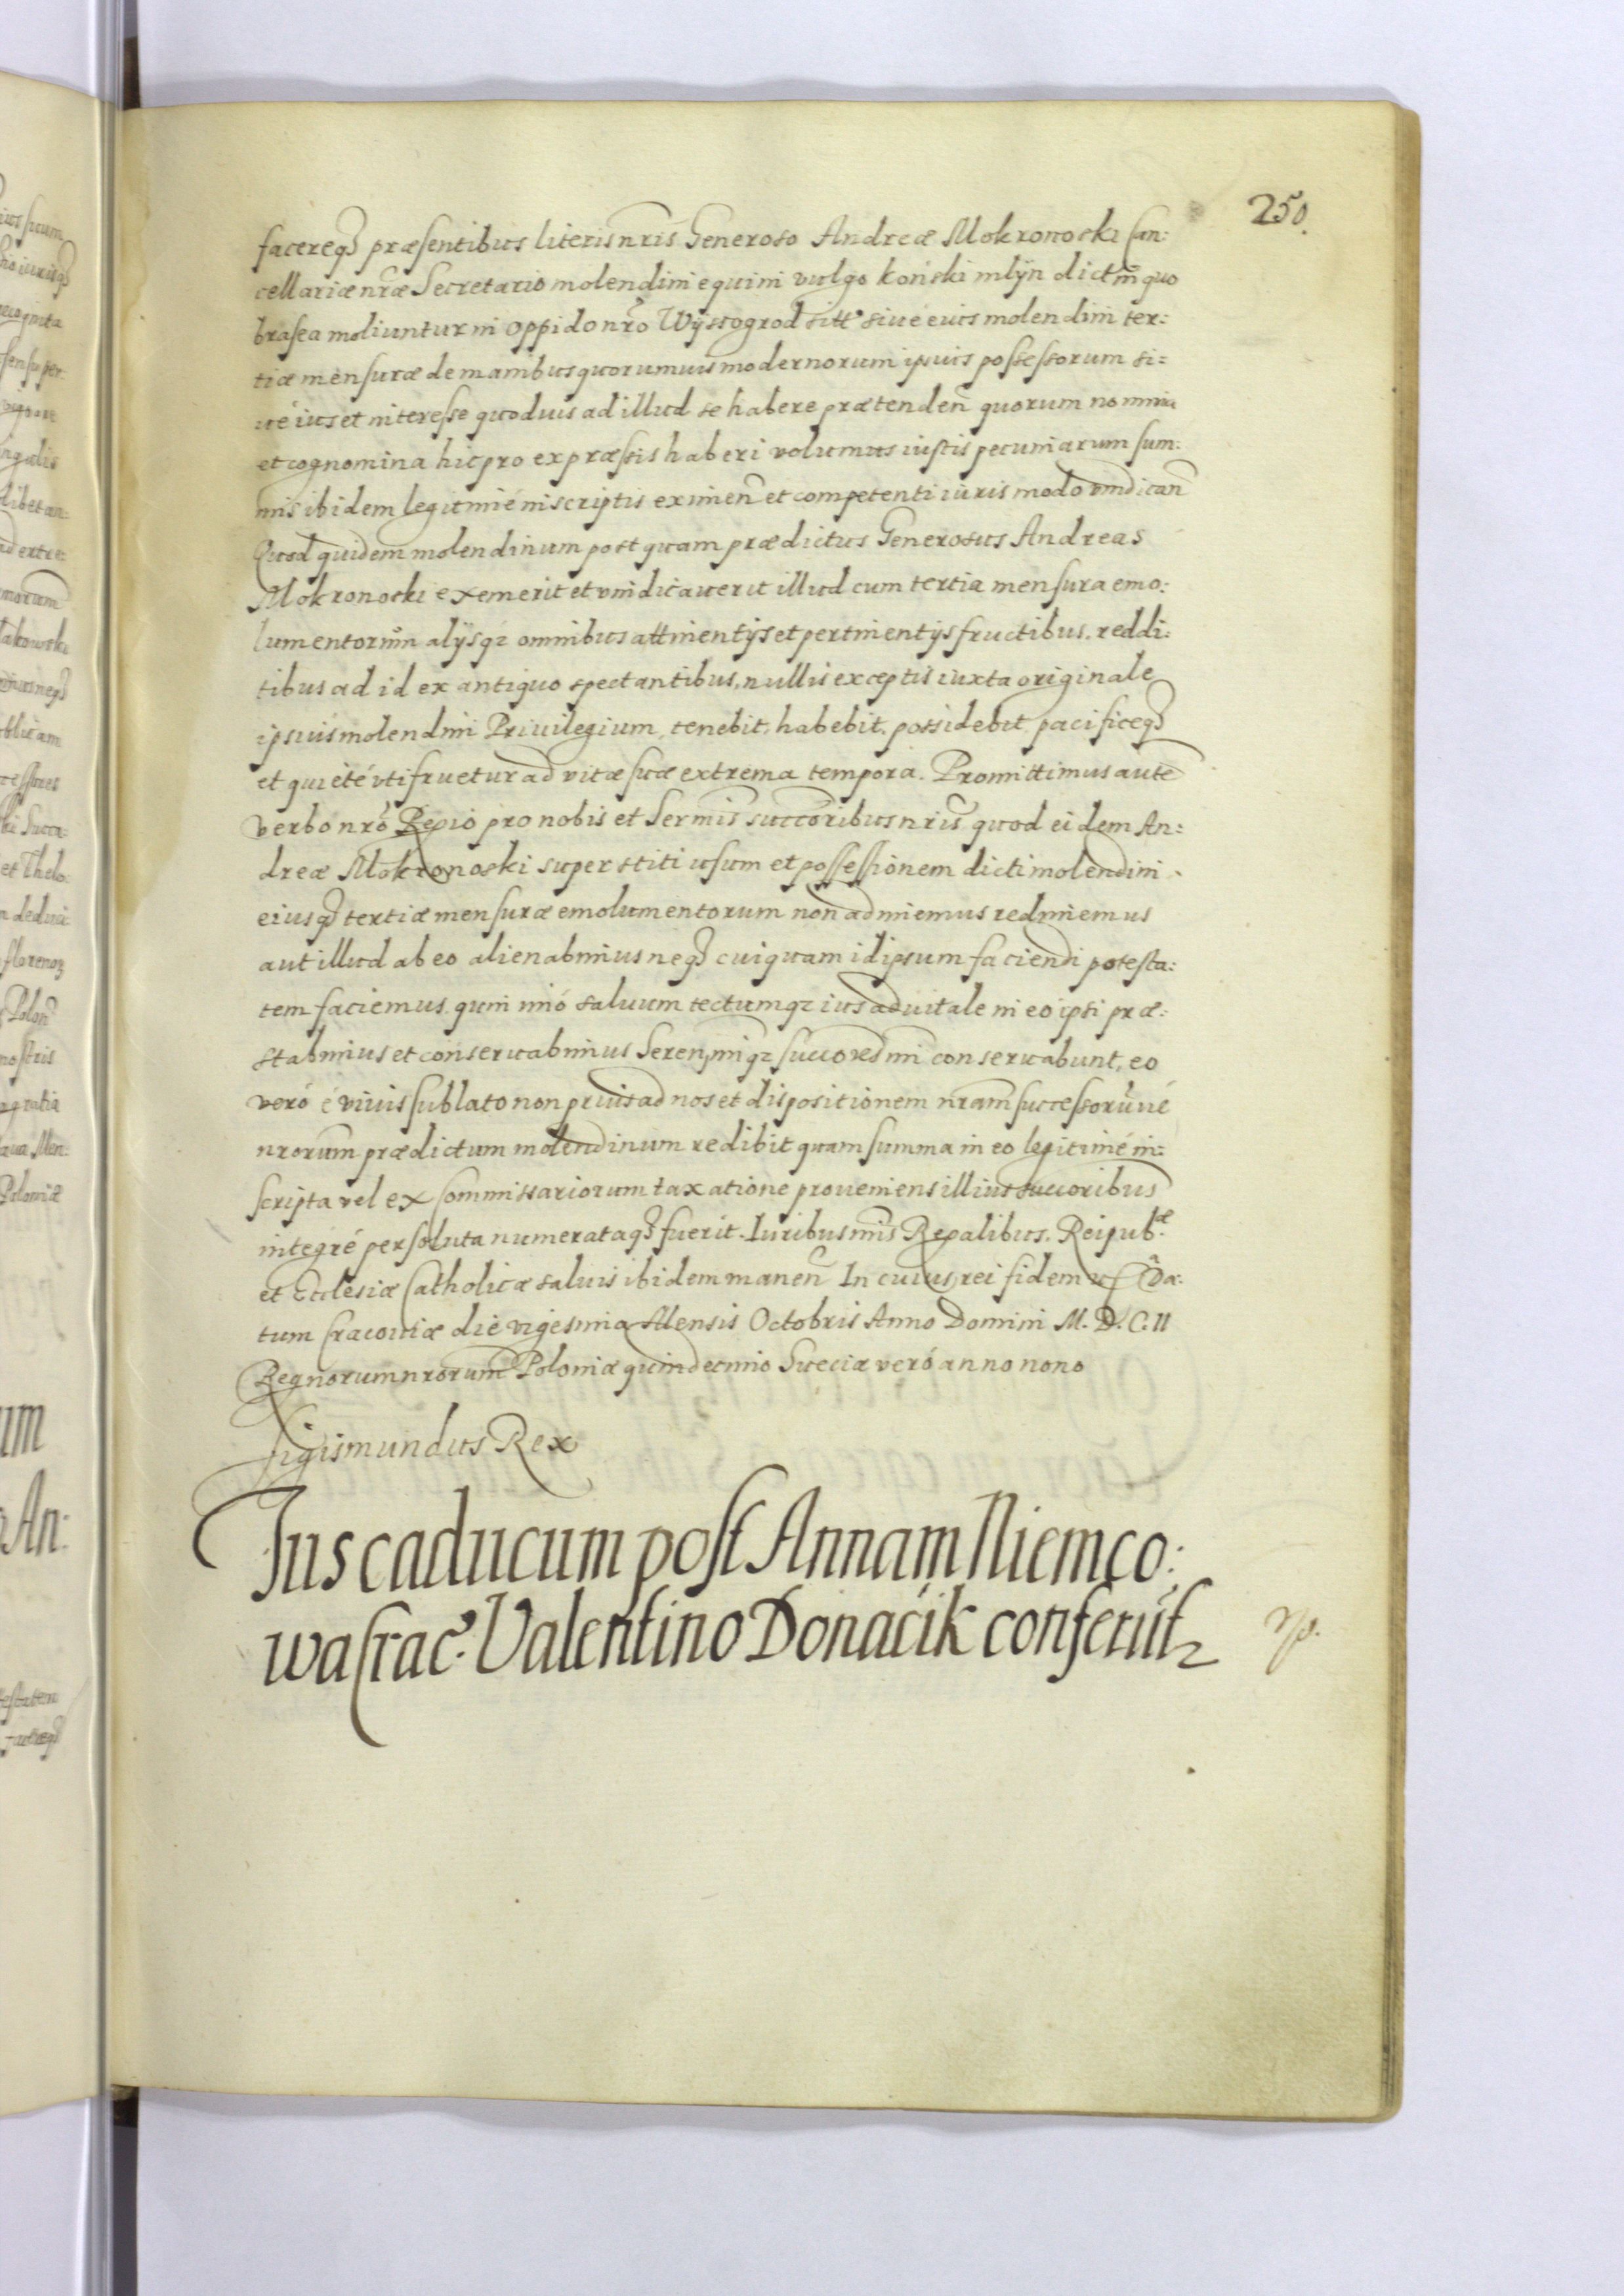 250.
facereq₃ præsentibus literis nr̃is Generoso Andreæ Mokronoski Can:
cellariæ nr̃æ Secretario molendini equini vulgo koński mlÿn dictm̃ quo
brasea moliuntur in oppido nr̃o Wÿssogrod sitt° siué eius molendini ter:
tiæ mensuræ de manibus quorumuis modernorum ipsius possessorum si:
ué ius et interesse quoduis ad illud se habere prætendeñ quorum nomina
et cognomina hic pro expræssis haberi volumus iustis pecuniarum sum:
mis ibidem legitimé inscriptis eximeñ et competenti iuris modo vindicañ
Quod quidem molendinum postquam prædictus Generosus Andreas
Mokronoski exemerit et vindicauerit illud cum tertia mensura emo:
lumentorum̃ alÿsqз omnibus attinentÿs et pertinentÿs fructibus, reddi:
tibus ad id ex antiquo spectantibus, nullis exceptis iuxta originale
ipsius molendini Priuilegium, tenebit, habebit, possidebit, pacificeq₃
et quieté vtifruetur ad vitæ suæ extrema tempora. Promittimus aute͂
verbo nr̃o Regio pro nobis et Sermis̃ succoribus̃ nris̃ quod eidem An:
dreæ Mokronoski superstiti usum et possessionem dicti molendini
eiusq₃ tertiæ mensuræ emolumentorum non adimemus redimemus
aut illud ab eo alienabimus neq₃ cuiquam id ipsum faciendi potesta:
tem faciemus, quin imó saluum tectumqз ius aduitale in eo ipsi præ:
stabimus et conseruabimus Serenm̃iqз succores̃ nri͂ conseruabunt, eo
veró é viuis sublato non prius ad nos et dispositionem nram̃ successorũué
nrorum̃ prædictum molendinum redibit quam summa in eo legitimé in:
scripta vel ex Commissariorum taxatione proueniens illius succoribus
integré persoluta numerataq₃ fuerit. Iuribus nr̃is Regalibus, Reipub:æ
et Ecclesiæ Catholicæ saluis ibidem maneñ In cuius rei fidem Da:
tum Cracouiæ die vigesima Mensis Octobris Anno Domini M. D. C. II
Regnorum nrorum̃ Poloniæ quindecimo Sueciæ veró anno nono
Sigismundus Rex
Ius caducum post Annam Niemco:
wa Crac̃. Valentino Donacik conferũtꝛ